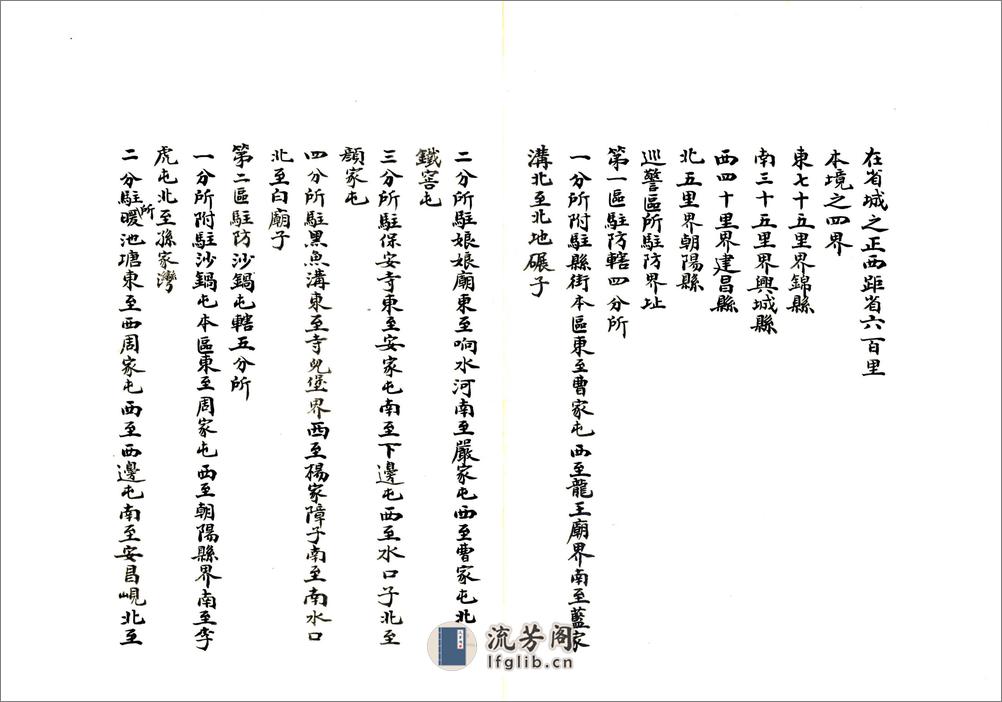 在省城之正西距省六百里
本境之四界
東七十五里界錦縣
南三十五里界興城縣
西四十里界建昌縣
北五里界朝陽縣
巡警區所駐防界址
第一區駐防轄四分所
一分所附駐縣街本區東至曹家屯西至龍王廟界南至藍家
溝北至北地碾子
二分所駐娘娘廟東至响水河南至嚴家屯西至曹家屯北
鐵窖屯
三分所駐保安寺東至安家屯南至下邊屯西至水口子北至
顔家屯
四分所駐黑魚溝東至寺兒堡界西至楊家障子南至南水口
北至白廟子
第二區駐防沙鍋屯轄五分所
一分所附駐沙鍋屯本區東至周家屯西至朝陽縣界南至李
虎屯北至孫家灣
二分所駐暖池塘東至西周家屯西至西邊屯南至安昌峴北至
流芳阁
lfglib.cn